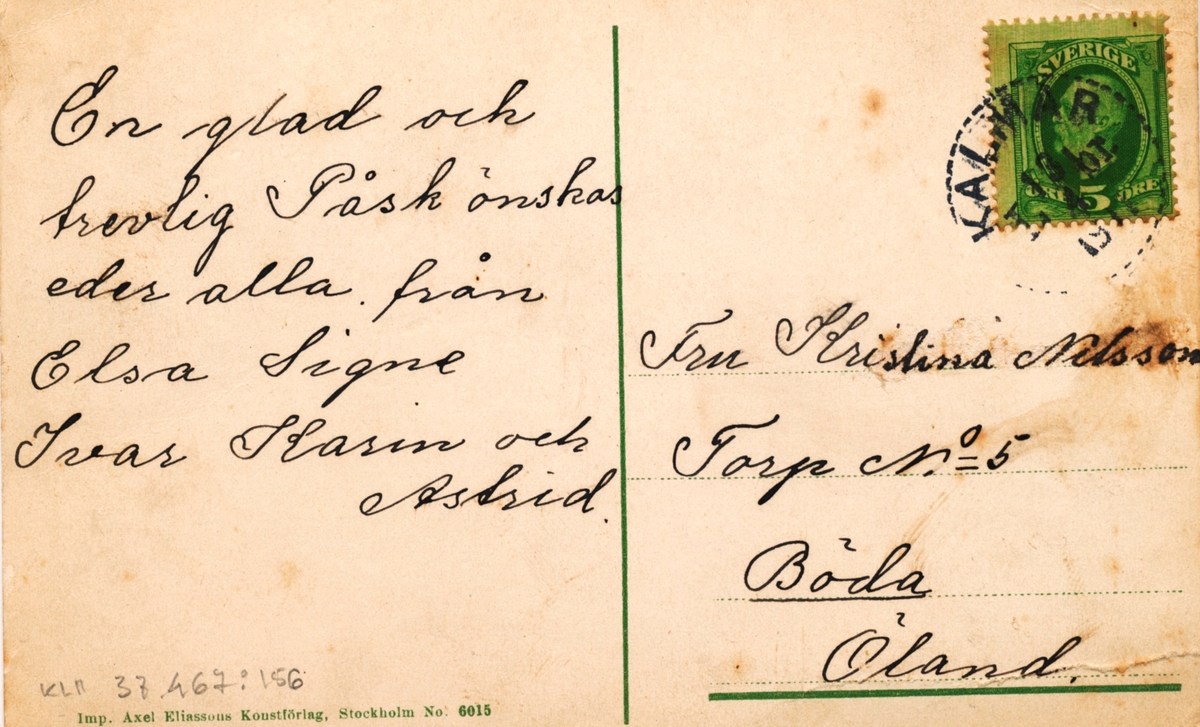 En glad och
trevlig Påsk önskas
eder alla. från
Elsa Signe
Ivar Karin och
Astrid.
KLM 37.467:156
Imp. Axel Eliassons Konstförlag, Stockholm No. 6015
SVERIGE
5 ÖRE
KALMAR
Fru Kristina Nilsson
Torp No 5
Böda
Öland.